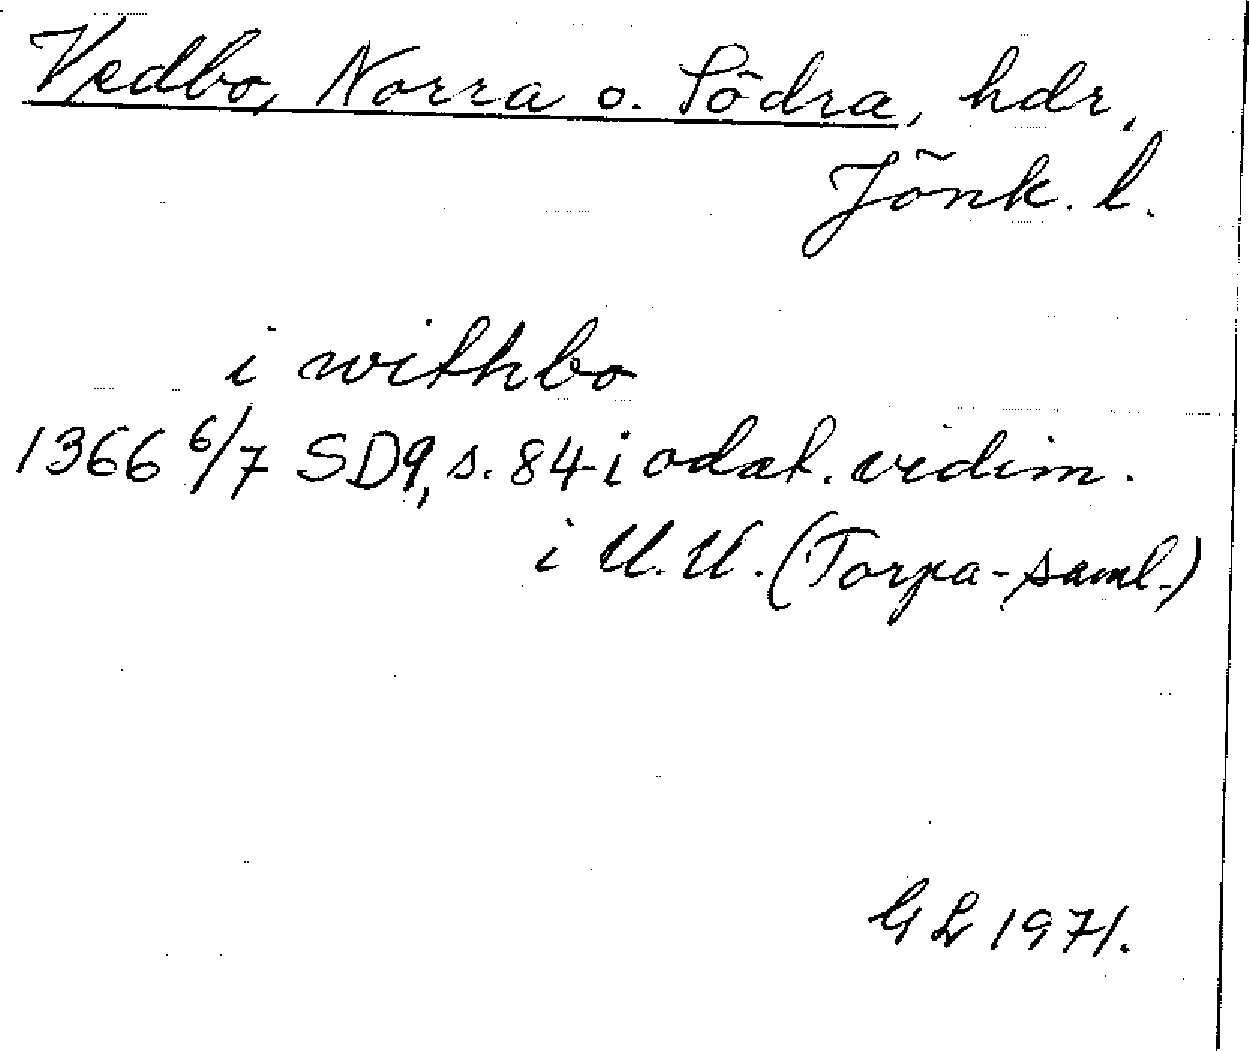 Vedbo, Norra o. Södra, hdr,
Jönk. l.
i withbo
1366 6/7 SD9, s. 84 i odat. vidim.
i U.U. (Torpa-saml.)
GL 1971.